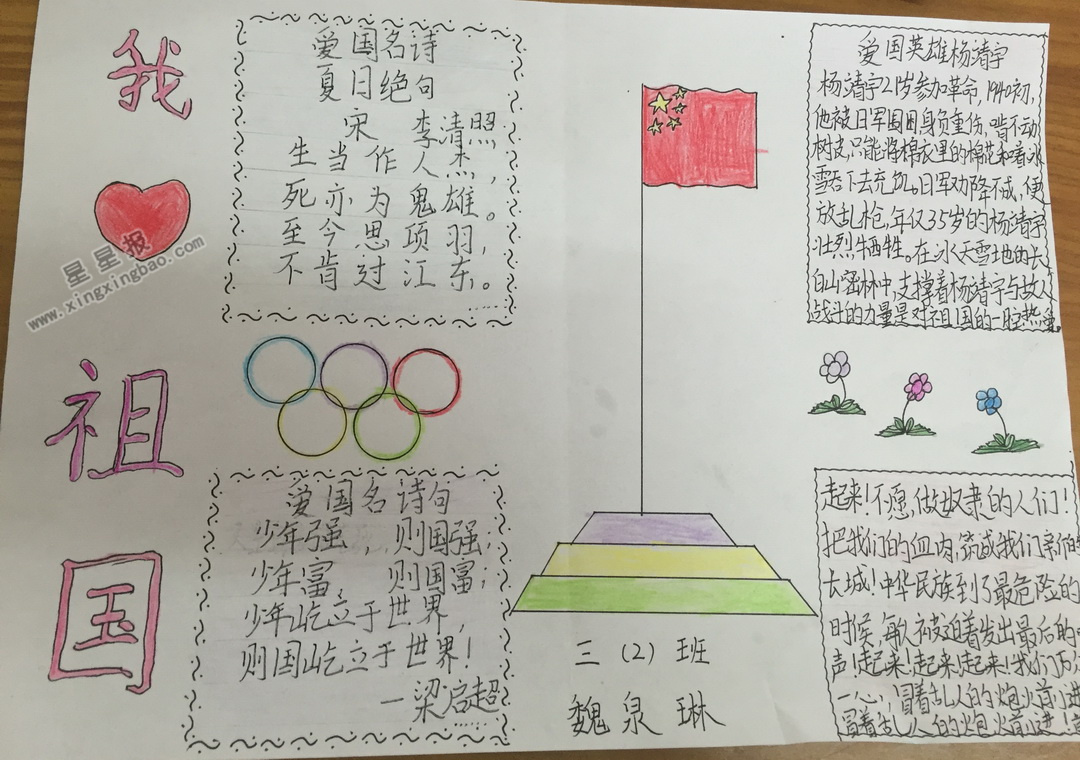 我
祖
国
星星报
www.xingxingbao.com
爱国名诗
夏日绝句
宋 李清照
生当作人杰，
死亦为鬼雄。
至今思项羽，
不肯过江东。
爱国名诗句
少年强，则国强；
少年富，则国富；
少年屹立于世界，
则国屹立于世界！
—梁启超
三（2）班
魏泉琳
爱国英雄杨靖宇
杨靖宇21岁参加革命，1940初，
他被日军围困身负重伤，啃不动
树皮，只能将棉衣里的棉花和着冰
雪吞下去充饥。日军劝降不成，便
放乱枪，年仅35岁的杨靖宇
壮烈牺牲。在冰天雪地的长
白山密林中，支撑着杨靖宇与敌人
战斗的力量是对祖国的一腔热爱。
起来！不愿做奴隶的人们！
把我们的血肉，筑成我们新的
长城！中华民族到了最危险的
时候，敌人被迫着发出最后的
声！起来！起来！起来！我们万
一心，冒着乱人的炮火前进
冒着乱人的炮火前进！